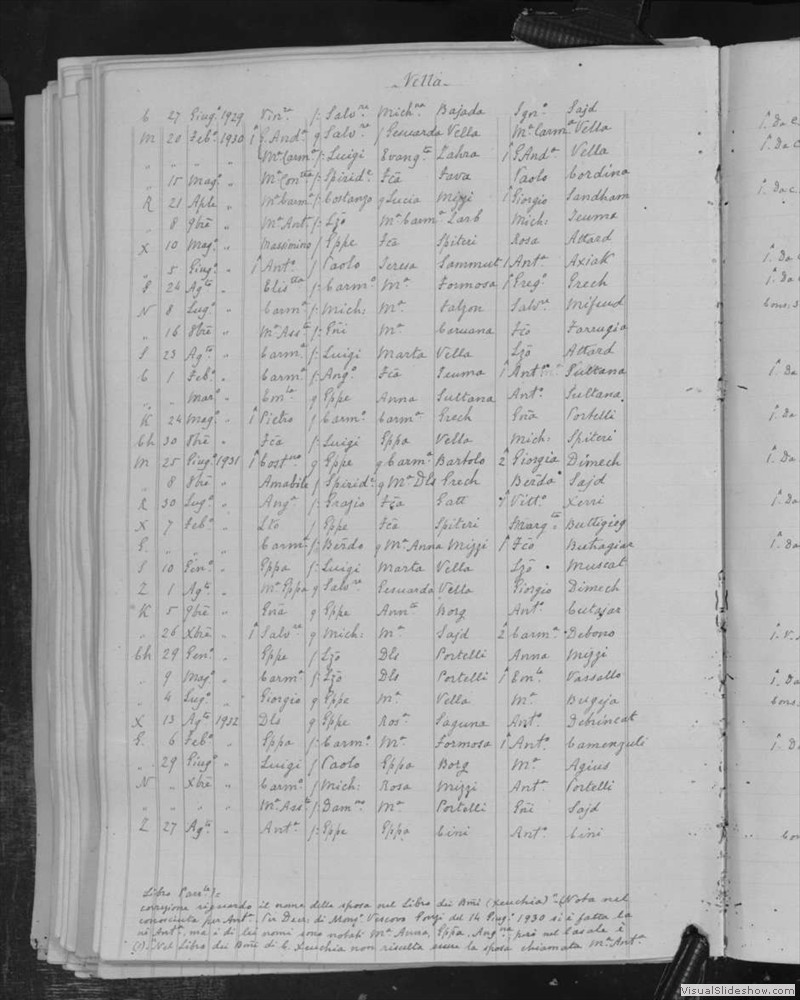 Vella
C 27 Giug.º 1929 Vin.ª f: Salv.re Mich.na Bajada Ign.º Sajd
M 20 Feb.º 1930 1ª G.And.ª q Salv.re f Gesuarda Vella Mª Carm.ª Vella
" " " " Mª Carm.ª f: Luigi Evang.ta Zahra 1º G.And.ª Vella
" 15 Mag.º " Mª Con.tta f: Spirid.e Fcã Fava Paolo Cordina
R 21 Aple " Mª Carm.ª f: Costanzo q Lucia Mizzi 1º Giorgio Sandham
" 8 9bre " Mª Ant. f: Lzõ Mª Carm.ª Zarb Mich: Scuma
X 10 Mag.º " Massimino f Gppe Fcã Spiteri Rosa Attard
" 5 Giug.º " 1º Ant.º f Paolo Teresa Sammut 1ª Ant.ª Axiak
S 24 Ag.to " Elis.tta f: Carm.º Mª Formosa 1º Greg.º Grech
N 8 Lug.º " Carm.ª f: Mich: Mª Falzon Salv.re Mifsud
" 16 8bre " Mª Ass.ta f: Gni Mª Caruana Fcõ Farrugia
S 23 Ag.to " Carm.ª f: Luigi Marta Vella Lzõ Attard
C 1 Feb.º " Carm.ª f: Ang.º Fcã Scuma 1º Ant. Sultana
" " Mar.º " Em.la q Gppe Anna Sultana Ant.º Sultana
K 24 Mag.º " 1º Pietro f Carm.º Carm.ª Grech Gnã Portelli
Ch 30 8bre " Fcã f: Luigi Gppa Vella Mich: Spiteri
M 25 Giug.º 1931 1º Cost.no q Gppe q Carm.ª Bartolo 2ª Giorgia Dimech
" 8 8bre " Amabile f Spirid.e q Mª Dls Grech Berdo Sajd
R 30 Lug.º " Ang.ª f: Grazio Fcã Gatt 1º Vitt.º Xerri
X 7 Feb.º " Lzõ f Gppe Fcã Spiteri Marg.ta Buttigieg
G. " " " Carm.ª f: Berdo q Mª Anna Mizzi 1º Fcõ Buhagiar
S 10 Gen.º " Gppa f: Luigi Marta Vella Lzõ Muscat
Z 1 Ag.to " Mª Gppa q Salv.re Gesuarda Vella Giorgio Dimech
K 5 9bre " Gnã q Gppe Ann.ta Borg Ant.º Cutajar
" 26 Xbre " 1º Salv.re q Mich: Mª Sajd 2ª Carm.ª Debono
Ch 29 Gen.º " Gppe f Lzõ Dls Portelli Anna Mizzi
" 9 Mag.º " Carm.ª f Lzõ Dls Portelli 1º Em.le Vassallo
" 4 Lug.º " Giorgio q Gppe Mª Vella Mª Bugeja
X 13 Ag.to 1932 Dls q Gppe Ros.ª Saguna Ant.º Debrincat
G. 6 Feb.º " Gppa f: Carm.º Mª Formosa 1º Ant.º Camenzuli
" 29 Giug.º " Luigi f Paolo Gppa Borg Mª Agius
N " Xbre " Carm.º f Mich: Rosa Mizzi Ant.ª Portelli
" " " " Mª Ass.ta f: Dam.no Mª Portelli Gni Sajd
Z 27 Ag.to " Ant.ª f: Gppe Gppa Cini Ant.º Cini
Libro Parr.le
correzione riguardo il nome della sposa nel Libro dei Bmi (Xeuchia)" (Nota nel
conosciuta per Ant.ª Per Decr: di Mong.r Vescovo Gonzi del 14 Giug.º 1930 si è fatta la
ni Ant.ª, ma i di lei nomi sono notati Mª Anna, Gppa, Ang.na, però nel casale è
(1). Nel Libro dei Bmi di C. Xeuchia non risulta essere la sposa chiamata Mª Ant.ª
1. Da C
1. Da C
1. Da C
1. Da
1. Da
Cons. S
1. Da
1. Da
1. Da
1. Da
1. Da
1. V.
1. Da
Cons.
1. D
Con
VisualSlideshow.com